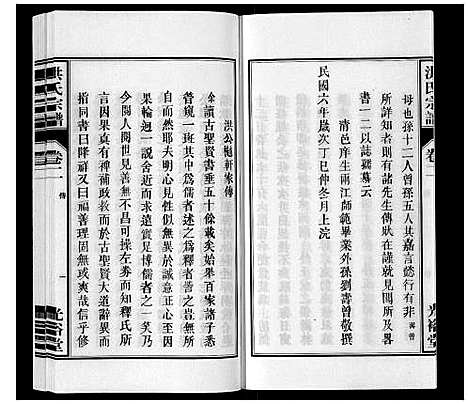 洪氏宗譜
卷一
母也孫十二人曾孫五人其嘉言懿行有非壽曾
所詳知者有諸先生傳狀在謹就見聞所及畧
書一二以誌鶴墓云
青邑庠生兩江師範畢業外孫劉壽曾敬撰
民國六年歲次丁巳仲冬月上浣
光裕堂
洪氏宗譜
卷一
傳
一
光裕堂
洪公梅軒家傳
余讀古聖賢書垂五十餘載矣始舉百家諸子悉
嘗窺一斑其中為儒者述之為釋者述之豈無所
自然耶夫明心見性似無異於誠意正心至因
果輪迴一說舍近而求遠實見博儒者之一笑乃
今閱人間世見善無不昌可操左券而知釋氏所
言因果真有裨補政教而於古聖賢大道辭異而
指同書曰降祥又曰福善理固無或爽哉信乎修